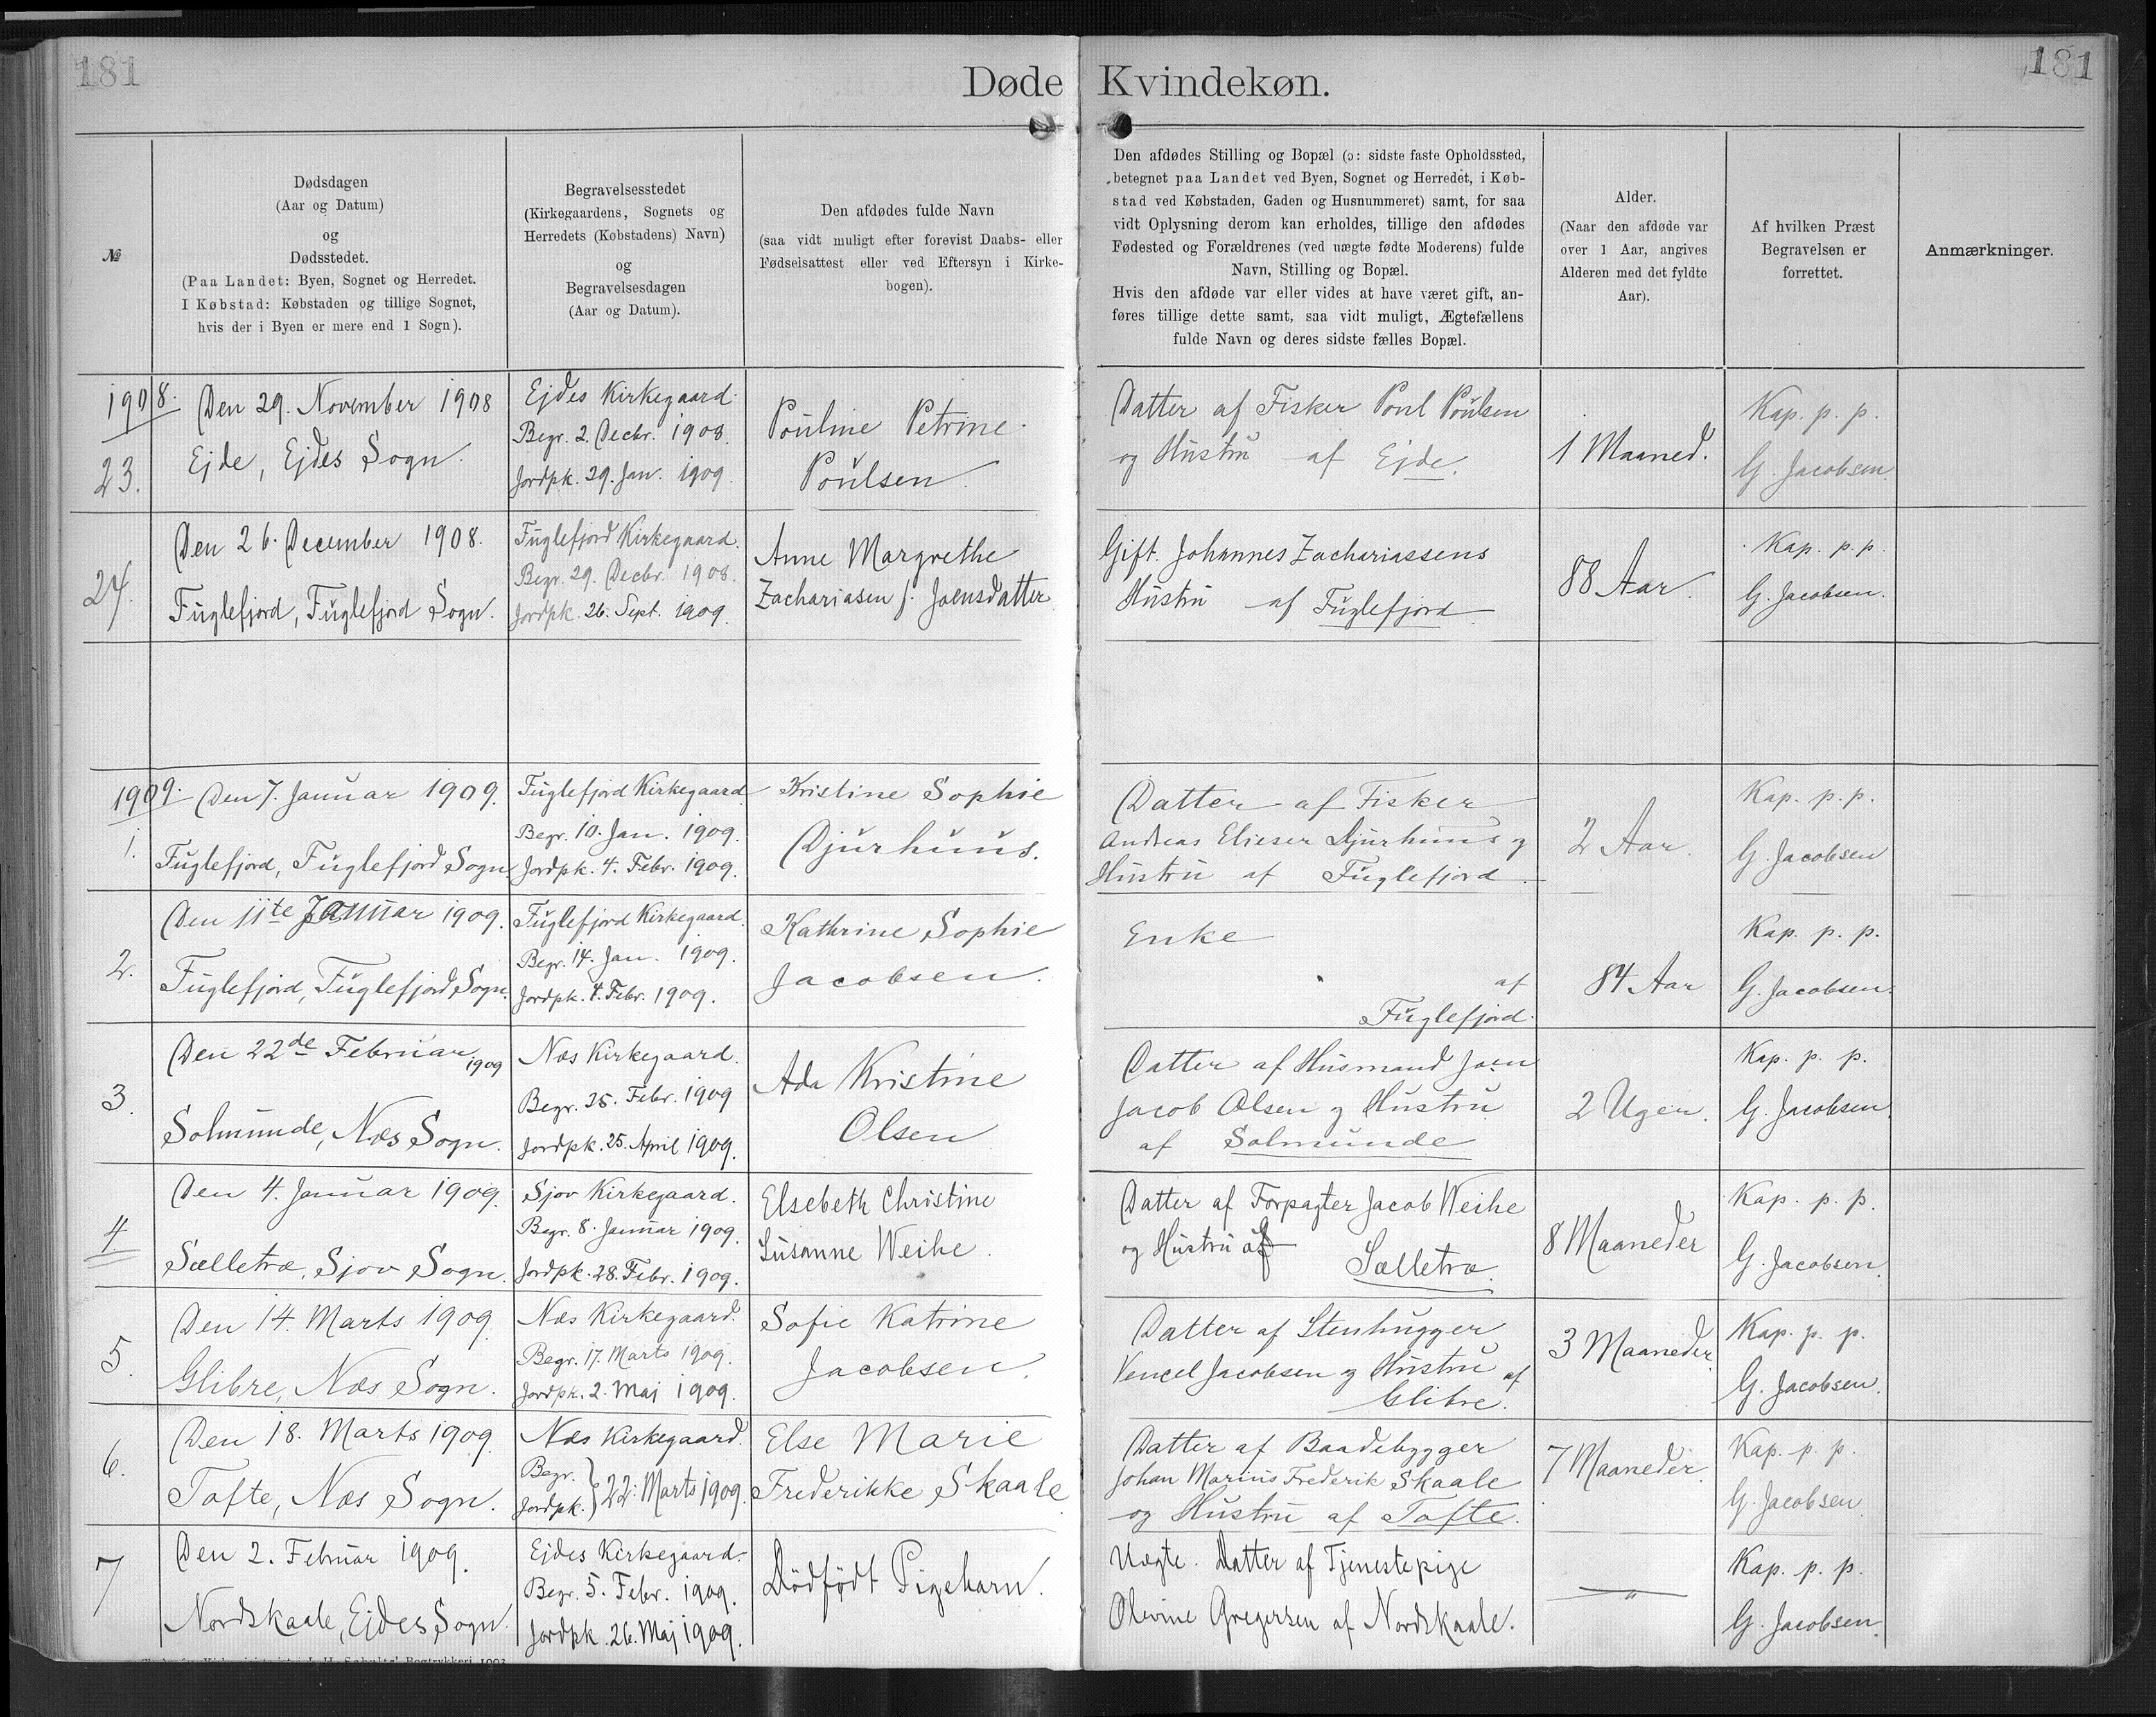 181
Døde Kvindekøn.
181
№
Dødsdagen
(Aar og Datum)
og
Dødsstedet.
(Paa Landet: Byen, Sognet og Herredet.
I Købstad: Købstaden og tillige Sognet,
hvis der i Byen er mere end 1 Sogn).
Begravelsesstedet
(Kirkegaardens, Sognets og
Herredets (Købstadens) Navn)
og
Begravelsesdagen
(Aar og Datum).
Den afdødes fulde Navn
(saa vidt muligt efter forevist Daabs- eller
Fødselsattest eller ved Eftersyn i Kirke-
bogen).
Den afdødes Stilling og Bopæl (ɔ: sidste faste Opholdssted,
betegnet paa Landet ved Byen, Sognet og Herredet, i Køb-
stad ved Købstaden, Gaden og Husnummeret) samt, for saa
vidt Oplysning derom kan erholdes, tillige den afdødes
Fødested og Forældrenes (ved uægte fødte Moderens) fulde
Navn, Stilling og Bopæl.
Hvis den afdøde var eller vides at have været gift, an-
føres tillige dette samt, saa vidt muligt, Ægtefællens
fulde Navn og deres sidste fælles Bopæl.
Alder.
(Naar den afdøde var
over 1 Aar, angives
Alderen med det fyldte
Aar).
Af hvilken Præst
Begravelsen er
forrettet.
Anmærkninger.
1908.
23.
Den 29. November 1908
Ejde, Ejdes Sogn.
Ejdes Kirkegaard.
Begr. 2. Decbr. 1908.
Jordpk. 29. Jan. 1909.
Pouline Petrine
Poulsen.
Datter af Fisker Poul Poulsen
og Hustru af Ejde.
1 Maaned.
Kap. p. p.
G. Jacobsen.
24.
Den 26. December 1908.
Fuglefjord, Fuglefjord Sogn.
Fuglefjord Kirkegaard.
Begr. 29. Decbr. 1908.
Jordpk. 26. Sept. 1909.
Anne Margrethe
Zachariasen f. Joensdatter
Gift. Johannes Zachariassens
Hustru af Fuglefjord
88 Aar.
Kap. p.p.
G. Jacobsen.
1909.
1.
Den 7. Januar 1909.
Fuglefjord, Fuglefjord Sogn.
Fuglefjord Kirkegaard
Begr. 10. Jan. 1909.
Jordpk. 4. Febr. 1909.
Kristine Sophie
Djurhuus.
Datter af Fisker
Andreas Elieser Djurhuus og
Hustru af Fuglefjord.
2 Aar.
Kap. p.p.
G. Jacobsen
2.
Den 11te Januar 1909.
Fuglefjord, Fuglefjord Sogn.
Fuglefjord Kirkegaard.
Begr. 14. Jan. 1909.
Jordpk. 4. Febr. 1909.
Kathrine Sophie
Jacobsen.
Enke
af
Fuglefjord.
84 Aar
Kap. p. p.
G. Jacobsen.
3.
Den 22de Februar 1909
Solmunde, Næs Sogn.
Næs Kirkegaard.
Begr. 25. Febr. 1909
Jordpk. 25. April 1909.
Ada Kristine
Olsen
Datter af Husmand Joen
Jacob Olsen og Hustru
af Solmunde
2 Uger.
Kap. p. p.
G. Jacobsen.
4.
Den 4. Januar 1909.
Sælletræ, Sjov Sogn.
Sjov Kirkegaard.
Begr. 8. Januar 1909.
Jordpk. 28. Febr. 1909.
Elsebeth Christine
Susanne Weihe.
Datter af Forpagter Jacob Weihe
og Hustru af
Sælletræ.
8 Maaneder
Kap. p. p.
G. Jacobsen.
5.
Den 14. Marts 1909.
Glibre, Næs Sogn.
Næs Kirkegaard.
Begr. 17. Marts 1909.
Jordpk. 2. Maj 1909.
Sofie Katrine
Jacobsen.
Datter af Stenhugger
Vencel Jacobsen og Hustru af
Glibre.
3 Maaneder.
Kap. p. p.
G. Jacobsen.
6.
Den 18. Marts 1909
Tofte, Næs Sogn.
Næs Kirkegaard.
Begr.
Jordpk. } 22. Marts 1909.
Else Marie
Frederikke Skaale
Datter af Baadebygger
Johan Marius Frederik Skaale
og Hustru af Tofte.
7 Maaneder.
Kap. p. p.
G. Jacobsen
7
Den 2. Februar 1909.
Nordskaale, Ejdes Sogn.
Ejdes Kirkegaard.
Begr. 5. Febr. 1909.
Jordpk. 26. Maj 1909.
Dødfødt Pigebarn.
Uægte. Datter af Tjenestepige
Olevine Gregersen af Nordskaale.
"
Kap. p. p.
G. Jacobsen.